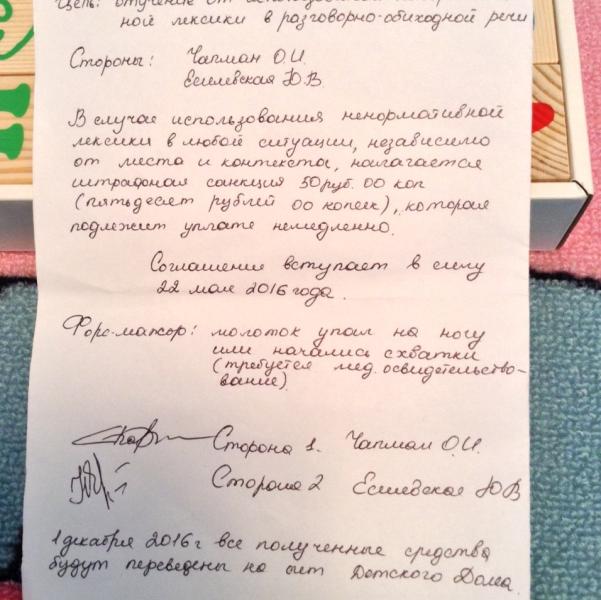 Цель: отучение от использования ненорматив-
ной лексики в разговорно-обиходной речи
Стороны: Чапман О.И.
Есилевская Ю.В.
В случае использования ненормативной
лексики в любой ситуации, независимо
от места и контекста, налагается
штрафная санкция 50 руб. 00 коп
(пятьдесят рублей 00 копеек), которая
подлежит уплате немедленно.
Соглашение вступает в силу
22 мая 2016 года.
Форс-мажор: молоток упал на ногу
или начались схватки
(требуется мед. освидетельство-
вание)
Сторона 1. Чапман О.И.
Сторона 2 Есилевская Ю В
1 декабря 2016 г все полученные средства
будут переведены на счет Детского Дома.